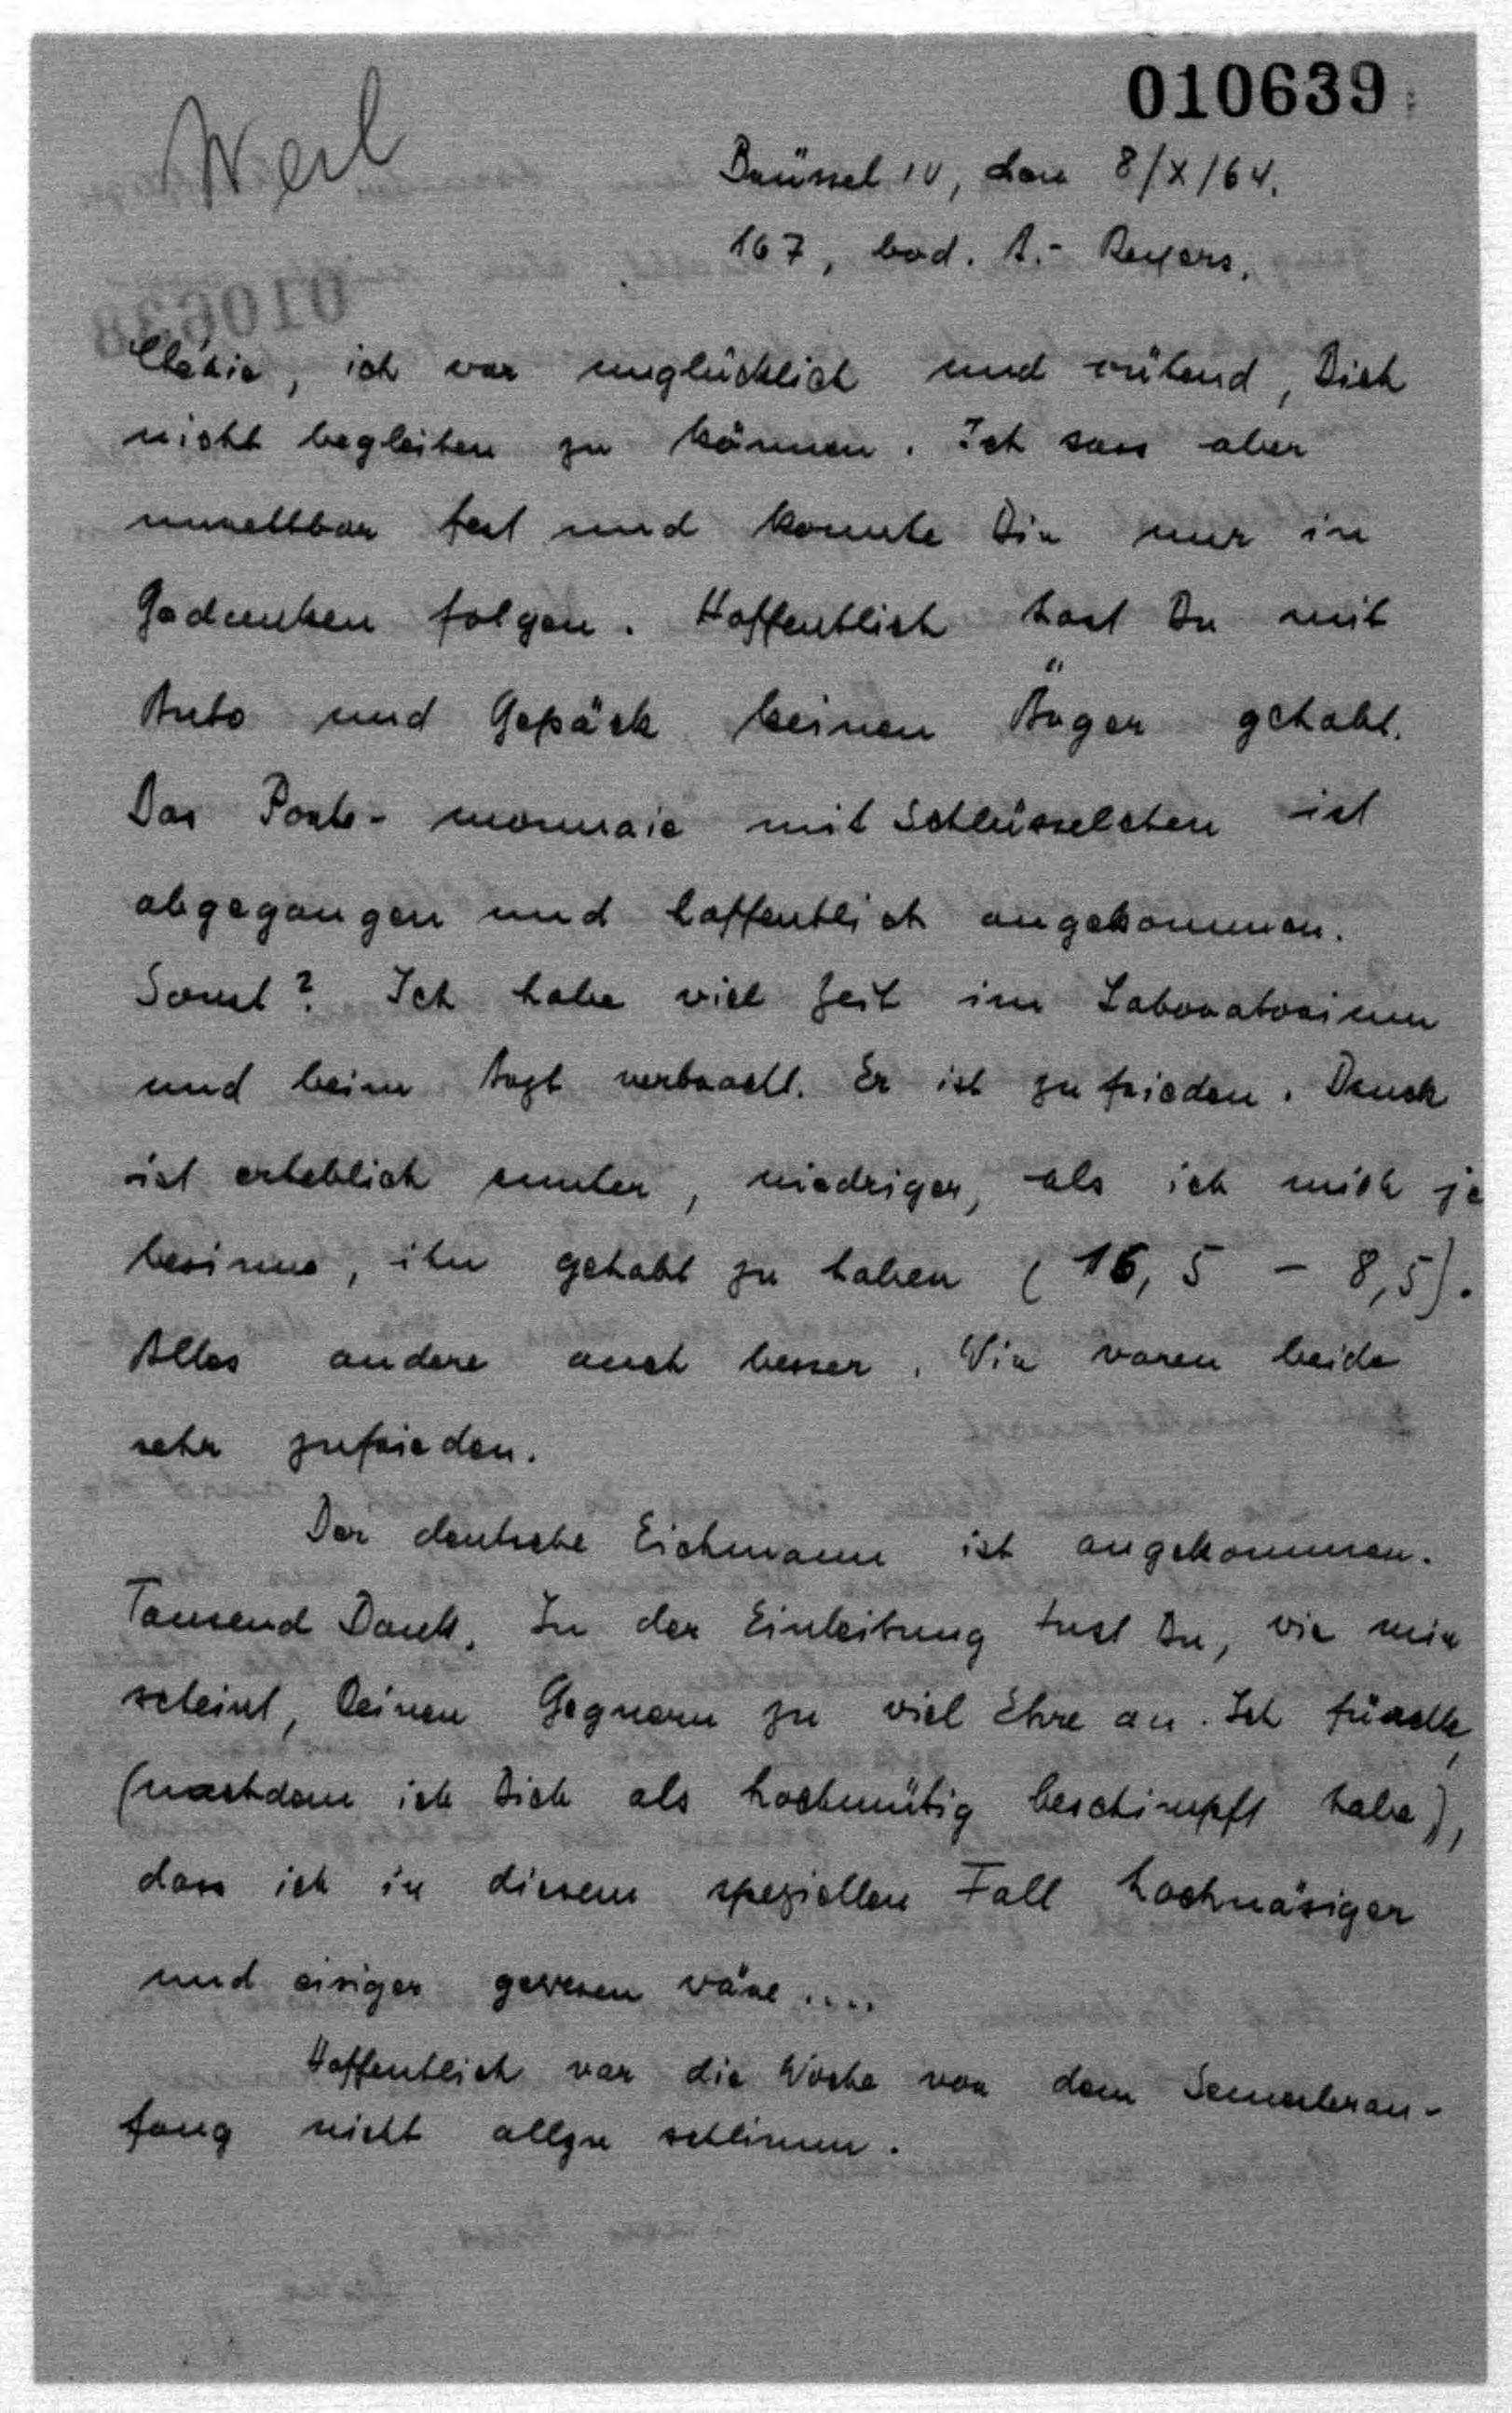 010639
Weil
Brüssel IV, den 8/X/64.
167, bvd. A.- Reyers.
Chérie, ich war unglücklich und wütend, Dich
nicht begleiten zu können. Ich sass aber
unrettbar fest und konnte Dir nur in
Gedanken folgen. Hoffentlich hast Du mit
Auto und Gepäck keinen Ärger gehabt.
Das Porte-monnaie mit Schlüsselchen ist
abgegangen und hoffentlich angekommen.
Sonst? Ich habe viel Zeit im Laboratorium
und beim Arzt verbracht. Er ist zufrieden. Druck
ist erheblich runter, niedriger, als ich mich je
besinne, ihn gehabt zu haben (16,5 - 8,5).
Alles andere auch besser. Wir waren beide
sehr zufrieden.
Der deutsche Eichmann ist angekommen.
Tausend Dank. In der Einleitung tust Du, wie mir
scheint, Deinen Gegnern zu viel Ehre an. Ich fürchte,
(nachdem ich Dich als hochmütig beschimpft habe),
dass ich in diesem speziellen Fall hochnäsiger
und eisiger gewesen wäre....
Hoffentlich war die Woche vor dem Semesteran-
fang nicht allzu schlimm.